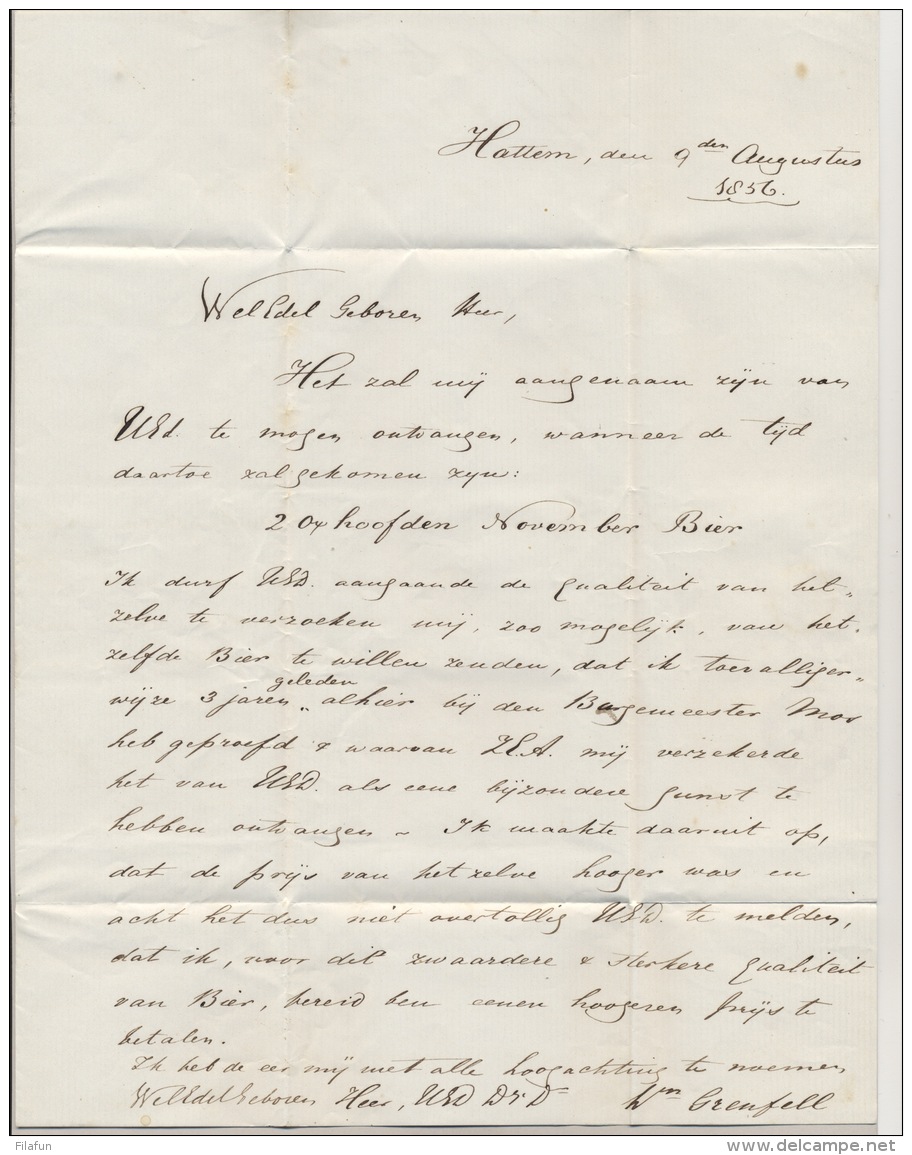 Hattem, den 9den Augustus
1856.
WelEdel Geboren Heer,
Het zal mij aangenaam zijn van
UEd. te mogen ontvangen, wanneer de tijd
daartoe zal gekomen zijn:
2 Oxhoofden November Bier
Ik durf UED. aangaande de qualiteit van het„
zelve te verzoeken mij, zoo mogelijk, van het„
zelfde Bier te willen zenden, dat ik toevalliger„
geleden
wijze 3 jaren „ alhier bij den Burgemeester Mos
heb geproefd & waarvan Z.E.A. mij verzekerde
het van UED. als eene bijzondere gunst te
hebben ontvangen ~ Ik maakte daaruit op,
dat de prijs van hetzelve hooger was en
acht het dus niet overtollig UED. te melden,
dat ik, voor die zwaardere & sterkere qualiteit
van Bier, bereid ben eenen hoogeren prijs te
betalen.
Ik heb de eer mij met alle hoogachting te noemen
WelEdelGeboren Heer, UED Dr. Dr
Wm Grenfell
Filafun
www.delcampe.net